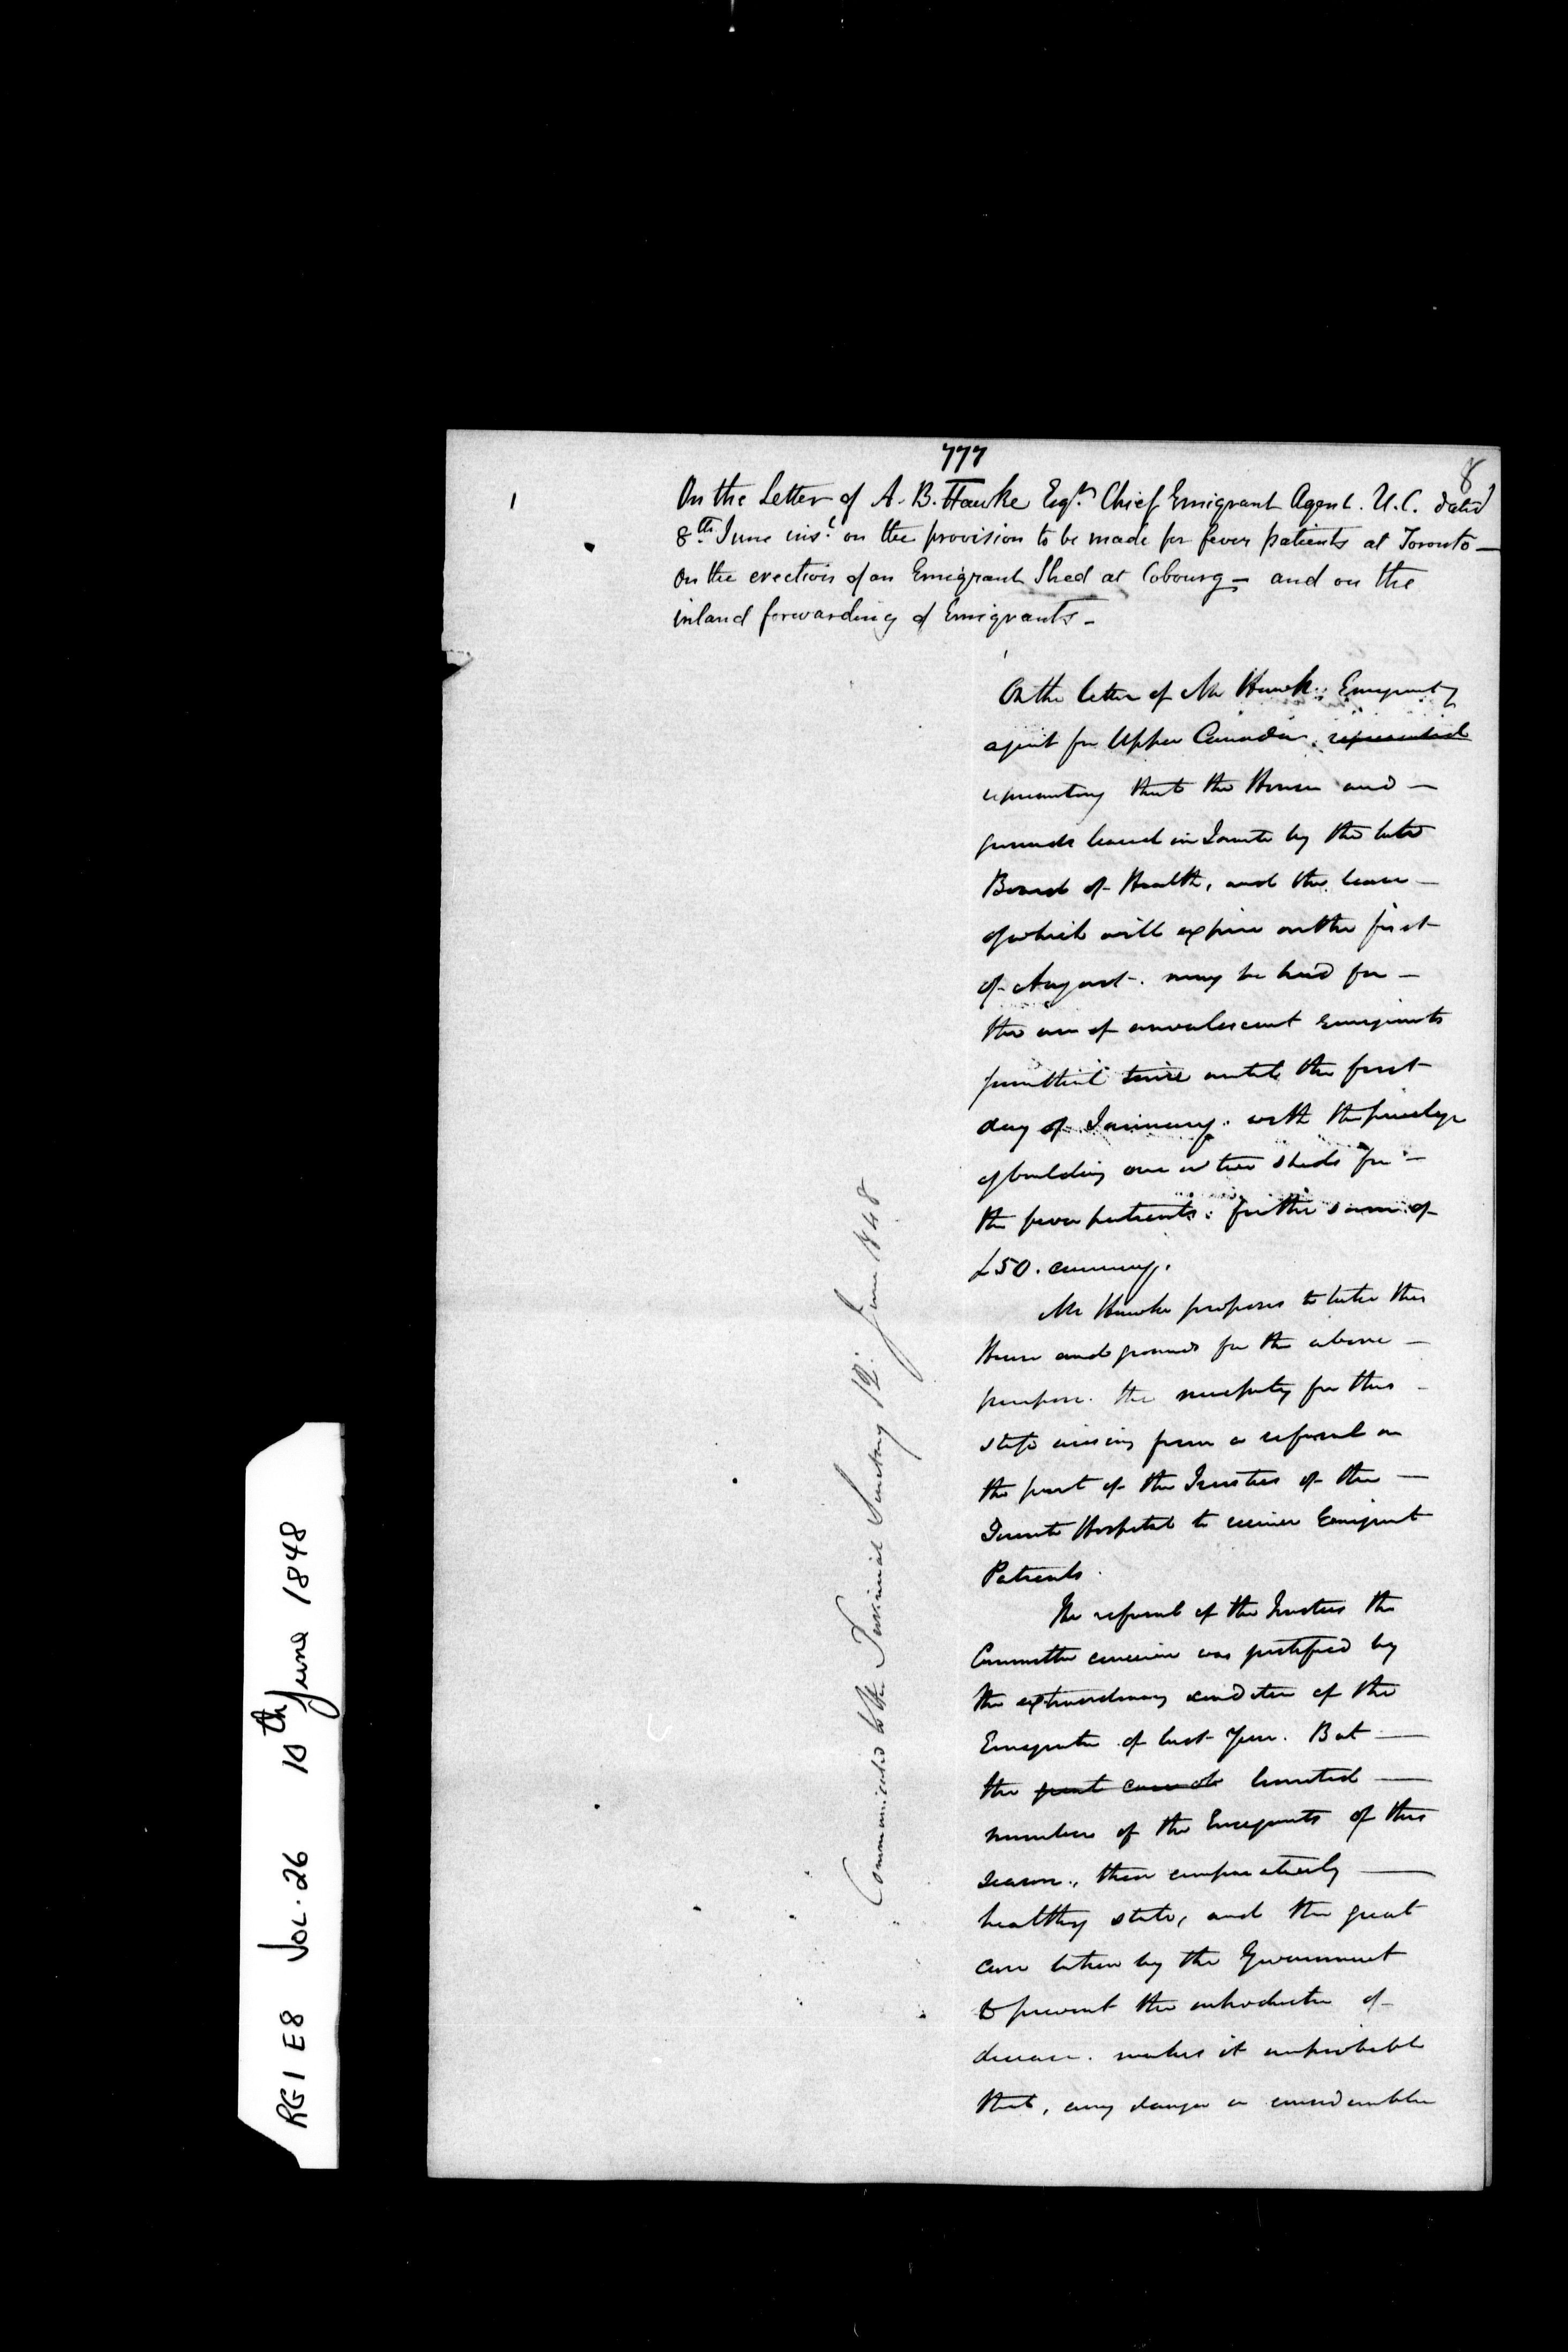 777
8
1
On the Letter of A. B. Hawke Esqr. Chief Emigrant Agent. U.C. dated
8th June inst. on the provision to be made for fever patients at Toronto —
On the erection of an Emigrant Shed at Cobourg — and on the
inland forwarding of Emigrants —
On the letter of Mr Hawke Emigrant
agent for Upper Canada, represented
representing that the House and —
grounds leased in Toronto by the late
Board of Health, and the lease —
of which will expire on the first
of August. may be had for —
the use of convalescent emigrants
from that time until the first
day of January. with the privilege
of building one or two sheds for —
the fever patients. for the sum of
£50. currency.
Mr Hawke proposes to take this
House and grounds for the above —
purpose. the necessity for this —
step arising from a refusal on
the part of the Trustees of the —
Toronto Hospital to receive Emigrant
Patients.
The refusal of the Trustees the
Committee conceive was justified by
the extraordinary condition of the
Emigrants of last Year. But —
the great limited —
number of the Emigrants of this
season, their comparatively —
healthy state, and the great
care taken by the Government
to prevent the introduction of
disease. makes it improbable
that, any danger or considerable
Communicated to the Provincial Secretary 12. June 1848
RG1 E8 VOL. 26 10th June 1848